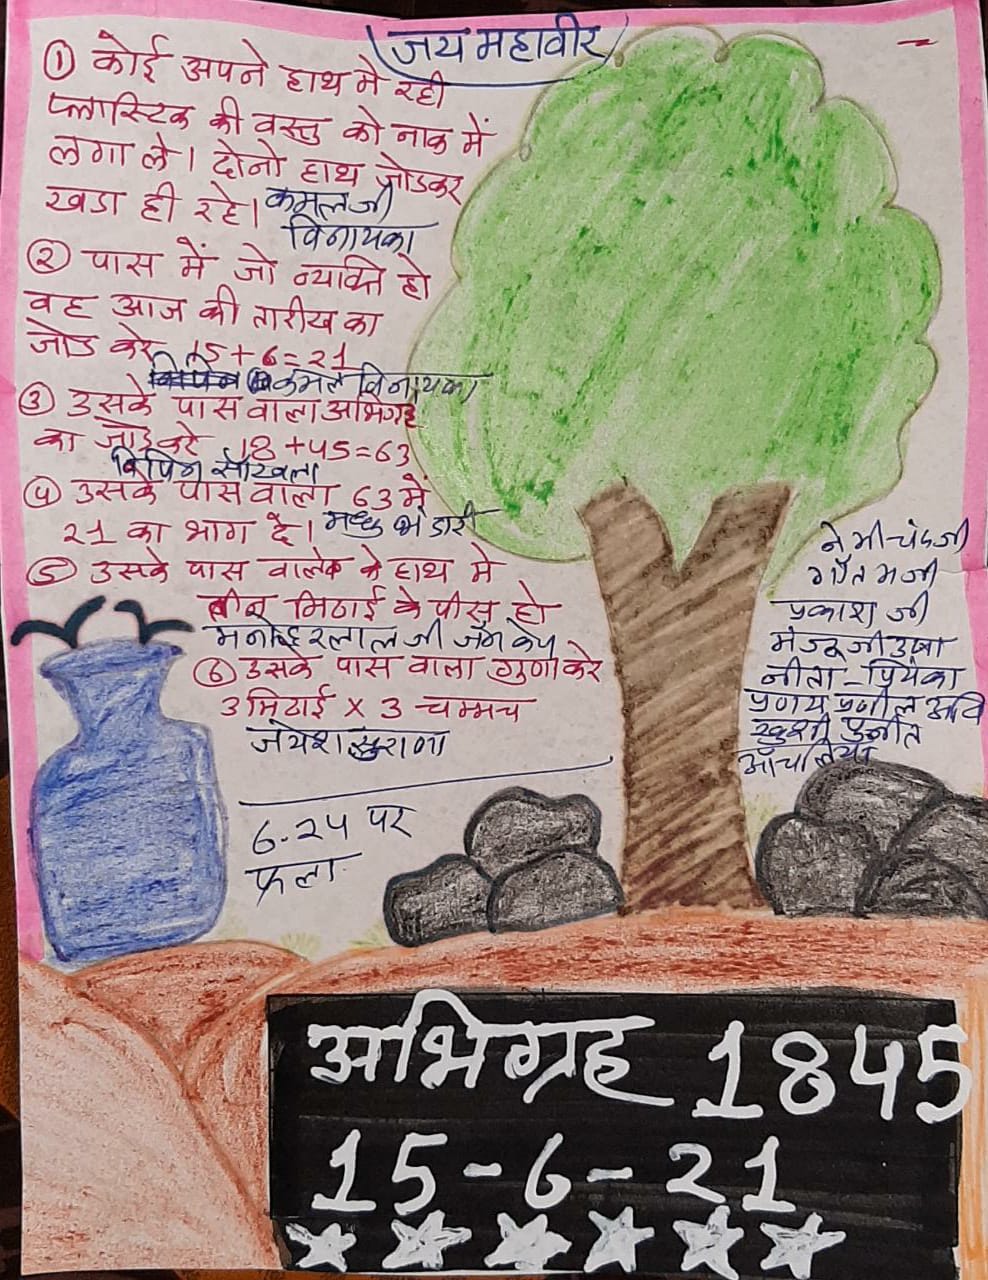 जय महावीर
① कोई अपने हाथ मे रही
प्लास्टिक की वस्तु को नाक में
लगा ले। दोनो हाथ जोडकर
खडा ही रहे। कमलजी
विनायका
② पास में जो व्यक्ति हो
वह आज की तारीख का
जोड करे 15+6=21
कमल विनायका
③ उसके पास वाला अभिग्रह
का जोड करे 18+45=63
विपिन साँखला
④ उसके पास वाला 63 में
21 का भाग दे। मधु भंडारी
⑤ उसके पास वालेके के हाथ मे
तीन मिठाई के पीस हो
मनोहरलाल जी जैन
⑥ उसके पास वाला गुणा करे
3 मिठाई x 3 चम्मच
जयेश सुराणा
6-24 पर
फला
नेमीचंदजी
गौतमजी
प्रकाश जी
मंजू जी उषा
नीता - प्रियंका
प्रणय प्रनील अवि
खुशी पुनीत
आँचलिया
अभिग्रह 1845
15-6-21